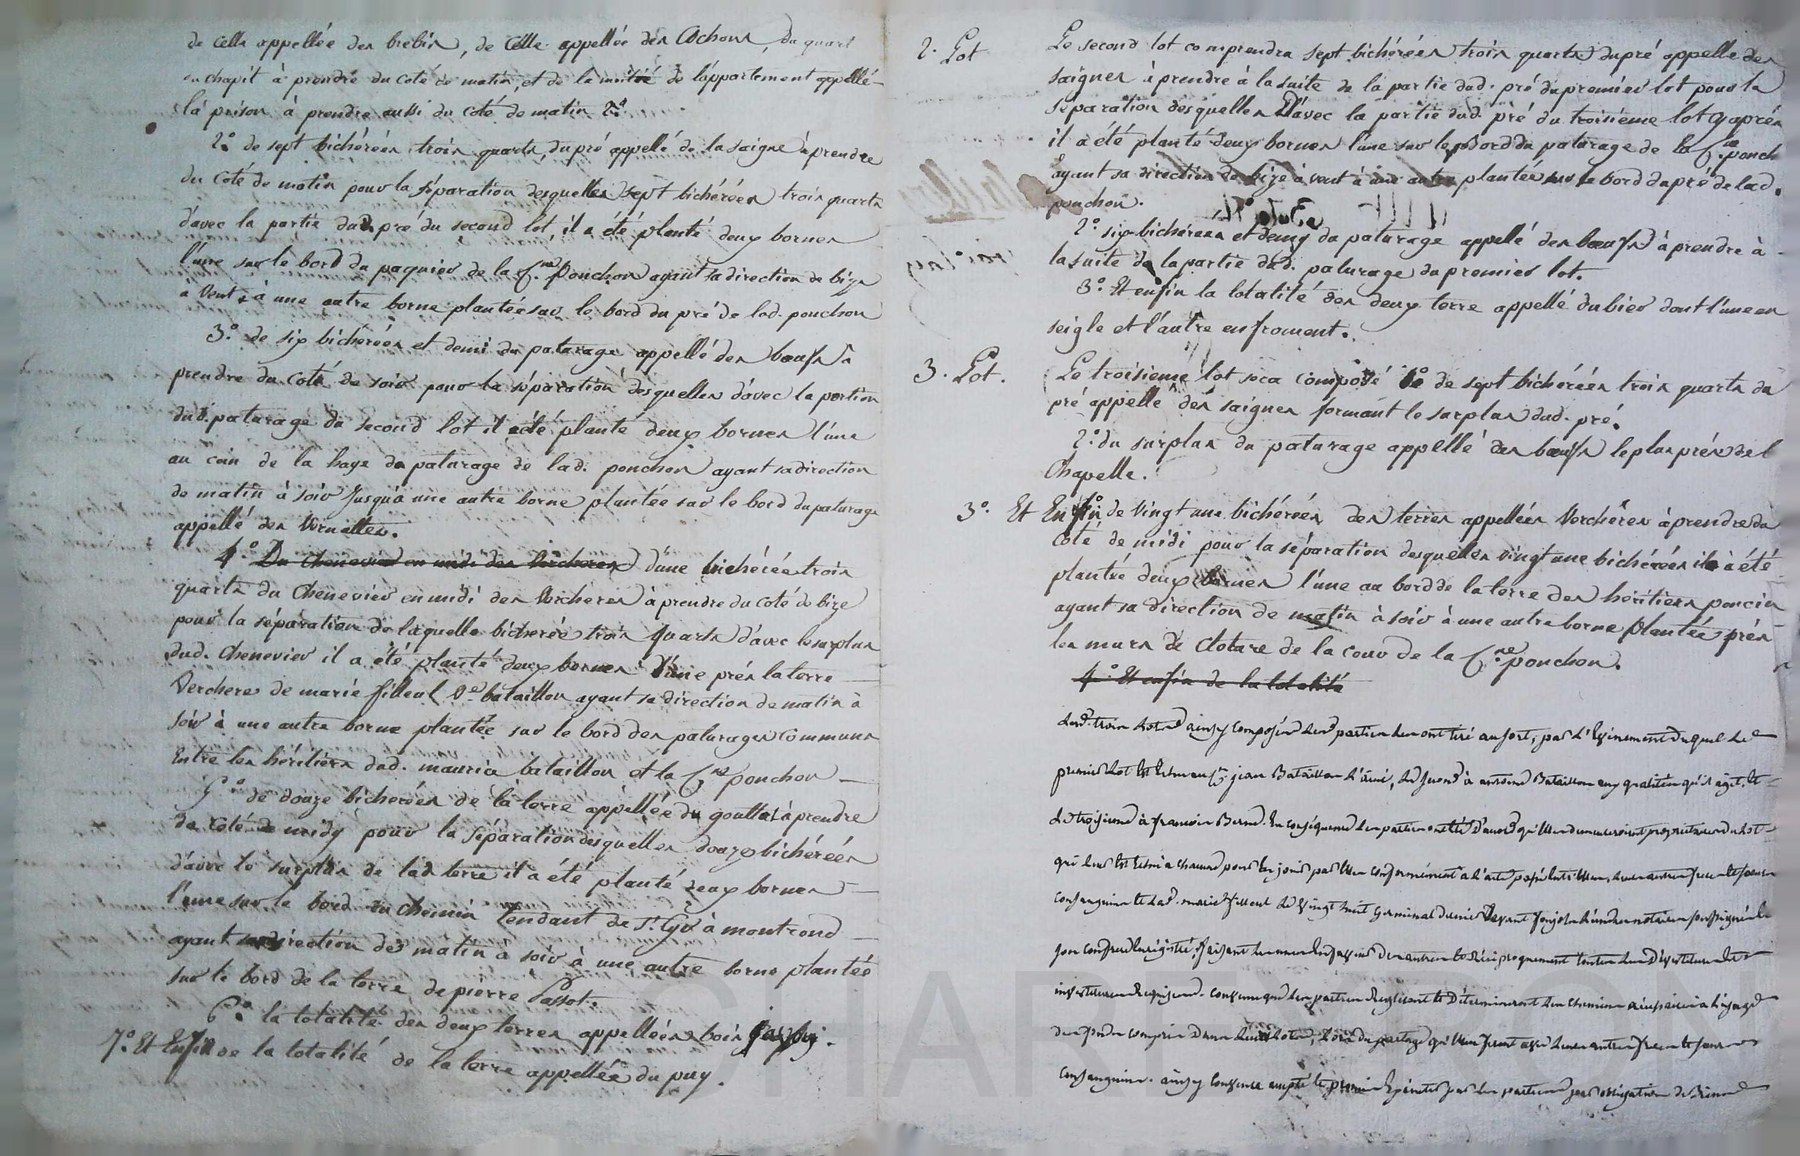 de celle appellée des brebis, de celle appellée des Cochons, du quart
du chapit à prendre du coté de matin, et de la moitié de l'appartement appellé
la prison à prendre aussi du coté de matin
2.° de sept bichérées trois quarts du pré appellé de la saigne à prendre
du coté de matin pour la séparation desquelles sept bichérées trois quarts
d'avec la partie dud. pré du second lot, il a été planté deux bornes
l'une sur le bord du paquier de la C.ne ponchon ayant sa direction de bize
à vent à une autre borne plantée sur le bord du pré de lad. ponchon
3.° de six bichérées et demi du paturage appellé des bœufs à
prendre du coté de soir pour la séparation desquelles d'avec la portion
dud. paturage du second lot il a été planté deux bornes l'une
au coin de la haye du paturage de lad. ponchon ayant sa direction
de matin à soir jusqu'à une autre borne plantée sur le bord du paturage
appellé des Vernattes.
4.° Du Chenevier en midi des Vercheres d'une bichérée trois
quarts du Chenevier en midi des Vercheres à prendre du coté de bize
pour la séparation de laquelle bichérée trois quarts d'avec le surplus
dud. Chenevier il a été planté deux bornes l'une près la terre
Verchere de marie filleul V.e bataillon ayant sa direction de matin à
soir à une autre borne plantée sur le bord des paturages communs
Entre les héritiers dud. maurice bataillon et la C.ne ponchon
5.° de douze bichérées de la terre appellée du gouttas à prendre
du coté de midy pour la séparation desquelles douze bichérées
d'avec le surplus de lad. terre il a été planté deux bornes
l'une sur le bord du chemin tendant de S.t Cyr à montrond
ayant sa direction de matin à soir à une autre borne plantée
sur le bord de la terre de pierre Passot.
6.° la totalité des deux terres appellées bois
7.° Et Enfin de la totalité de la terre appellée du puy.
2. Lot
Le second lot comprendra sept bichérées trois quarts du pré appellé des
saignes à prendre à la suite de la partie dud. pré du premier lot pour la
séparation desquelles d'avec la partie dud. pré du troisième lot cy après
il a été planté deux bornes l'une sur le bord du paturage de la C.ne ponch
ayant sa direction de bize à vent à une autre plantée sur le bord du pré de lad.
ponchon.
2.° six bichérées et demy du paturage appellé des bœufs à prendre à
la suite de la partie dud. paturage du premier lot.
3.° Et enfin la totalité des deux terre appellé du bier dont l'une en
seigle et l'autre en froment.
3. Lot.
Le troisieme lot sera composé 1.° de sept bichérées trois quarts du
pré appellé des saignes formant le surplus dud. pré.
2.° du surplus du paturage appellé des bœufs le plus près de l
Chapelle.
3.° Et Enfin de vingt une bichérées des terres appellées Vercheres à prendre du
coté de midi pour la séparation desquelles vingt une bichérées il a été
planté deux bornes l'une au bord de la terre des héritiers poncin
ayant sa direction de matin à soir à une autre borne plantée près
les murs de Cloture de la cour de la C.ne ponchon.
4.° Et enfin de la totalité
Lesd. trois Lots ainsy composés Les parties Les ont tiré au sort, par l'Evénement duquel Le
premier Lot Est Echu au C.n jean Bataillon l'ainé, Le second à antoine Bataillon aux qualités qu'il agit, Et
Le troisieme à francois Berne. En conséquence Les parties ont été d'accord qu'elles demeureroient proprietaires du Lot
qui leur Est Echu à chacune pour En jouir par elles conformément à l'acte
consanguins Et lad. marie filleul Le vingt huit Germinal dernier Devant
de fonds compris dans Lesd. Lots, Lors du partage qu'elles feront avec Leurs autres freres Et sœurs
consanguins. ainsy convenu accepté Et promis Exécuter par Les parties par obligation de Biens